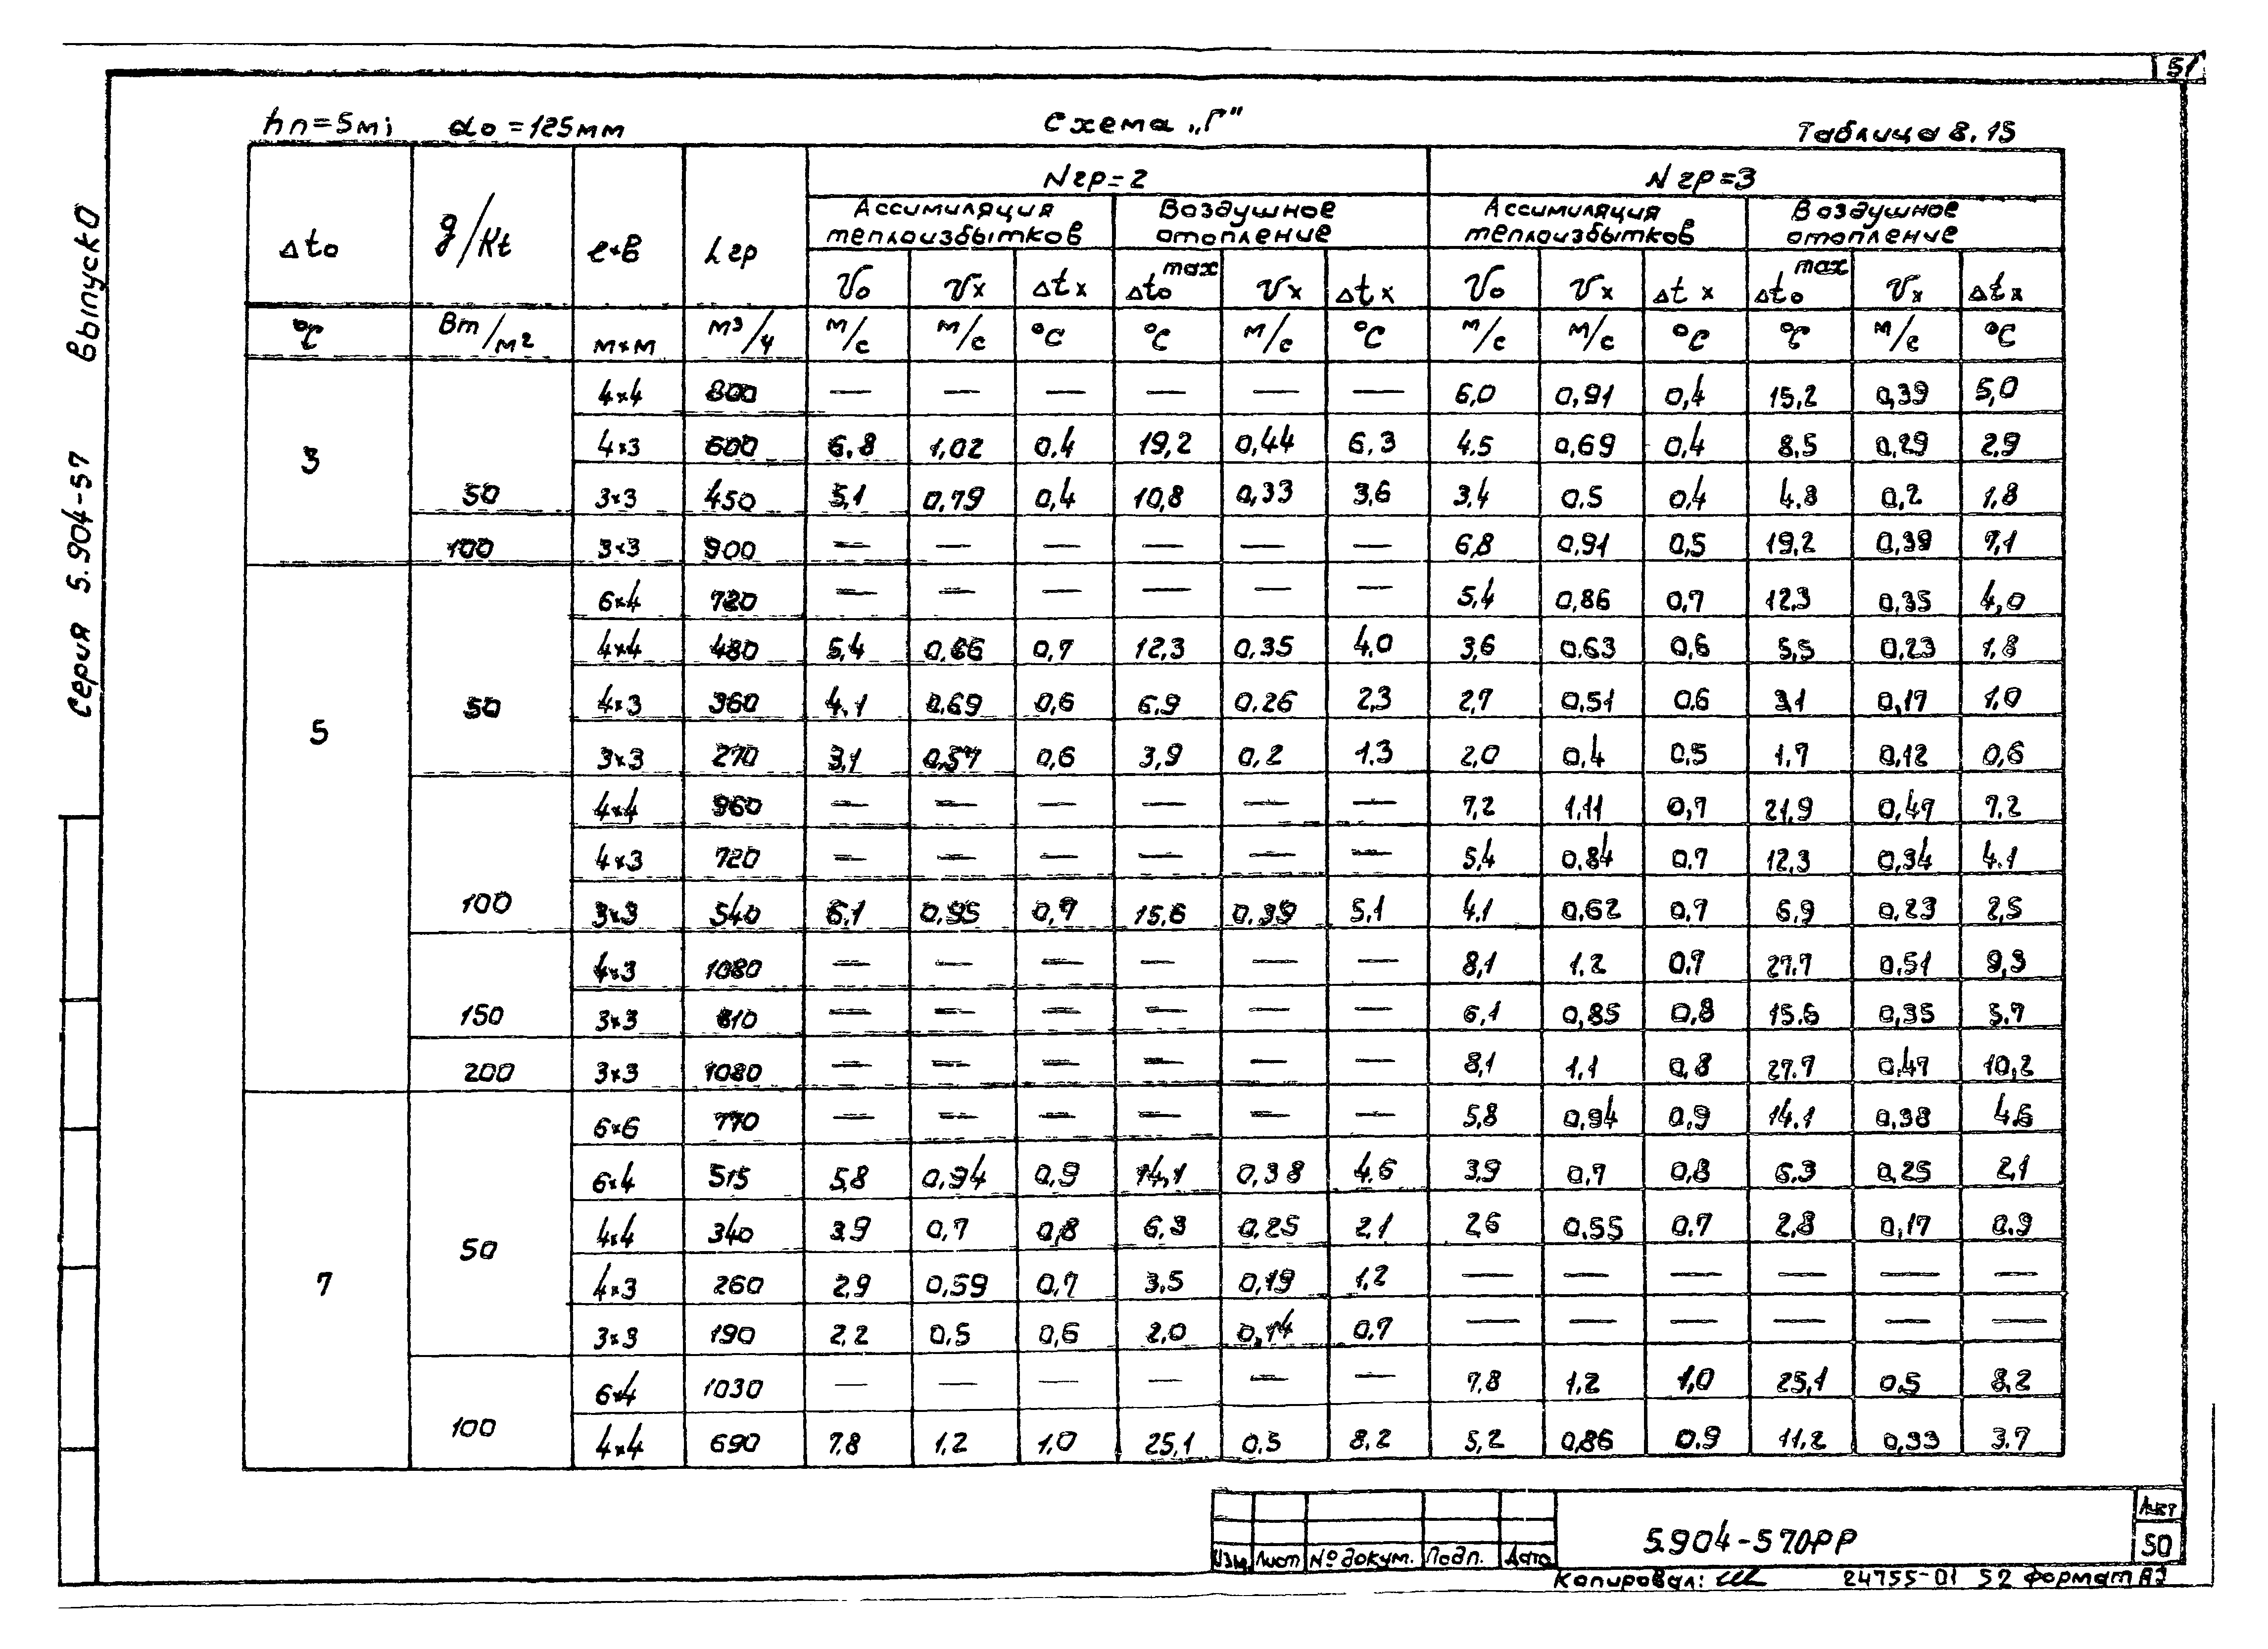 51
hп=5м; do=125мм
Схема „Г"
Таблица 8.15
Δto g/Kt е×в Lгр Nгр=2 Nгр=3
Ассимиляция теплоизбытков Воздушное отопление Ассимиляция теплоизбытков Воздушное отопление
Vo Vx Δtx Δto max Vx Δtx Vo Vx Δtx Δto max Vx Δtx
°C Вт/м2 м×м м³/ч м/с м/с °C °C м/с °C м/с м/с °C °C м/с °C
3 50 4×4 800 — — — — — — 6,0 0,91 0,4 15,2 0,39 5,0
4×3 600 6,8 1,02 0,4 19,2 0,44 6,3 4.5 0,69 0,4 8,5 0,29 2,9
3×3 450 5,1 0,79 0,4 10,8 0,33 3,6 3,4 0.5 0,4 4.8 0,2 1,8
100 3×3 900 — — — — — — 6,8 0,91 0,5 19,2 0,39 7,1
5 50 6×4 720 — — — — — — 5,4 0,86 0,7 12.3 0,35 4,0
4×4 480 5,4 0,86 0,7 12,3 0,35 4.0 3,6 0.63 0,6 5,5 0,23 1,8
4×3 360 4.1 0,69 0,6 6.9 0.26 2,3 2,7 0,51 0.6 3,1 0,17 1,0
3×3 270 3,1 0,57 0,6 3,9 0,2 1.3 2,0 0,4 0.5 1,7 0,12 0,6
100 4×4 960 — — — — — — 7,2 1,11 0,7 21,9 0,47 7.2
4×3 720 — — — — — — 5,4 0.84 0.7 12,3 0,34 4.1
3×3 540 6,1 0,95 0,7 15,6 0,39 5,1 4,1 0,62 0,7 6,9 0,23 2,5
150 4×3 1080 — — — — — — 8,1 1.2 0,7 27.7 0,51 9,3
3×3 810 — — — — — — 6,1 0,85 0,8 15.6 0,35 5.7
200 3×3 1080 — — — — — — 8,1 1.1 0,8 27.7 0,47 10,2
7 50 6×6 770 — — — — — — 5,8 0,94 0,9 14.1 0,38 4,6
6×4 515 5,8 0,94 0,9 14,1 0,38 4.6 3,9 0,7 0,8 6.3 0,25 2,1
4×4 340 3,9 0,7 0,8 6,3 0,25 2,1 2,6 0,55 0.7 2,8 0,17 0.9
4×3 260 2,9 0,59 0,7 3,5 0,19 1,2 — — — — — —
3×3 190 2,2 0,5 0,6 2,0 0,14 0,7 — — — — — —
100 6×4 1030 — — — — — — 7,8 1,2 1,0 25,1 0,5 8,2
4×4 690 7.8 1,2 1,0 25,1 0.5 8,2 5,2 0,86 0.9 11,2 0,33 3.7
Серия 5.904-57 Выпуск 0
Изм. Лист № докум. Подп. Дата
5.904-57.0РР
Лист
50
Копировал: 24755-01 52 Формат А3